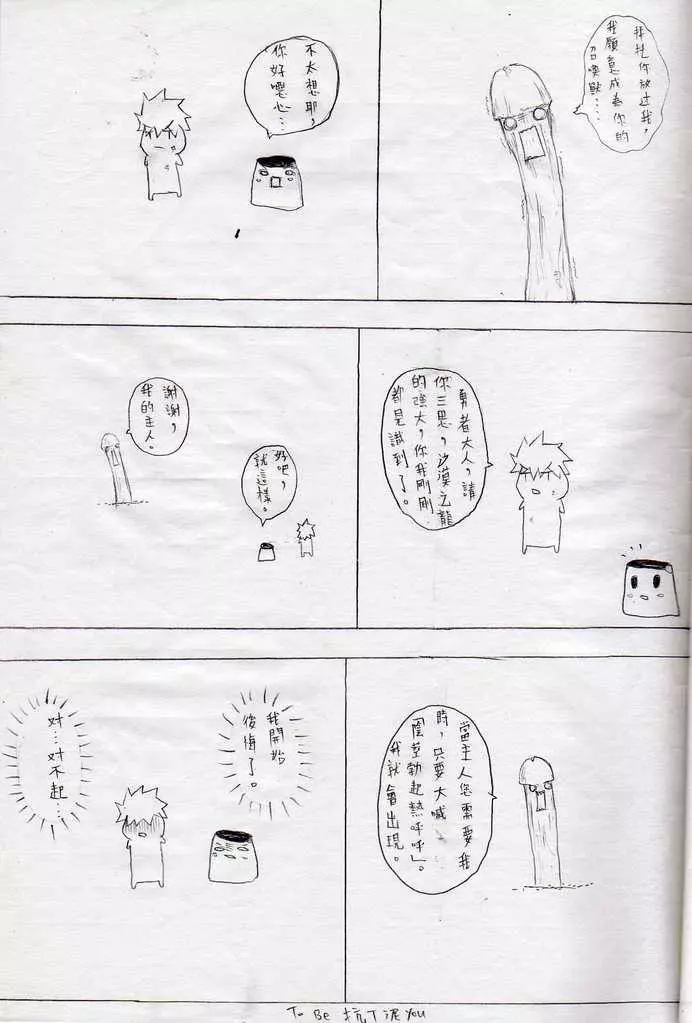 拜託你放过我，
我願意成為你的
召喚獸…
不太想耶，
你好噁心…
勇者大人，請
你三思，沙漠之龍
的強大，你我剛剛
都見識到了。
好吧，
就這樣。
謝謝，
我的主人。
當主人您需要我
時，只要大喊
「陰莖勃起熱呼呼」。
我就會出現。
我開始
後悔了。
对…对不起…
To Be 坑下泥 You